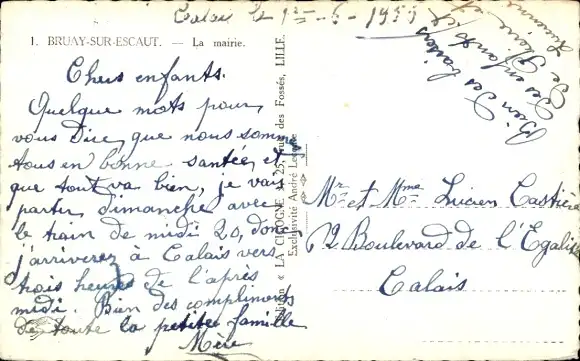 Calais le 1er - 6 - 1955
1. BRUAY-SUR-ESCAUT. — La mairie.
Chers enfants.
Quelque mots pour
vous Dire que nous somme
tous en bonne santée, et
que tout va bien, je vais
partir dimanche avec
le train de midi 20, donc
j'arriverez à Calais vers
trois heures de l'après
midi. Bien des compliments
de toute la petite famille
Mère
« LA CIGOGNE » 25, rue des Fossés, LILLE.
Exclusivité André
Bien des baisers
des enfants et
de
Mr et Mme Lucien Castière
72 Boulevard de l'Egalité
Calais